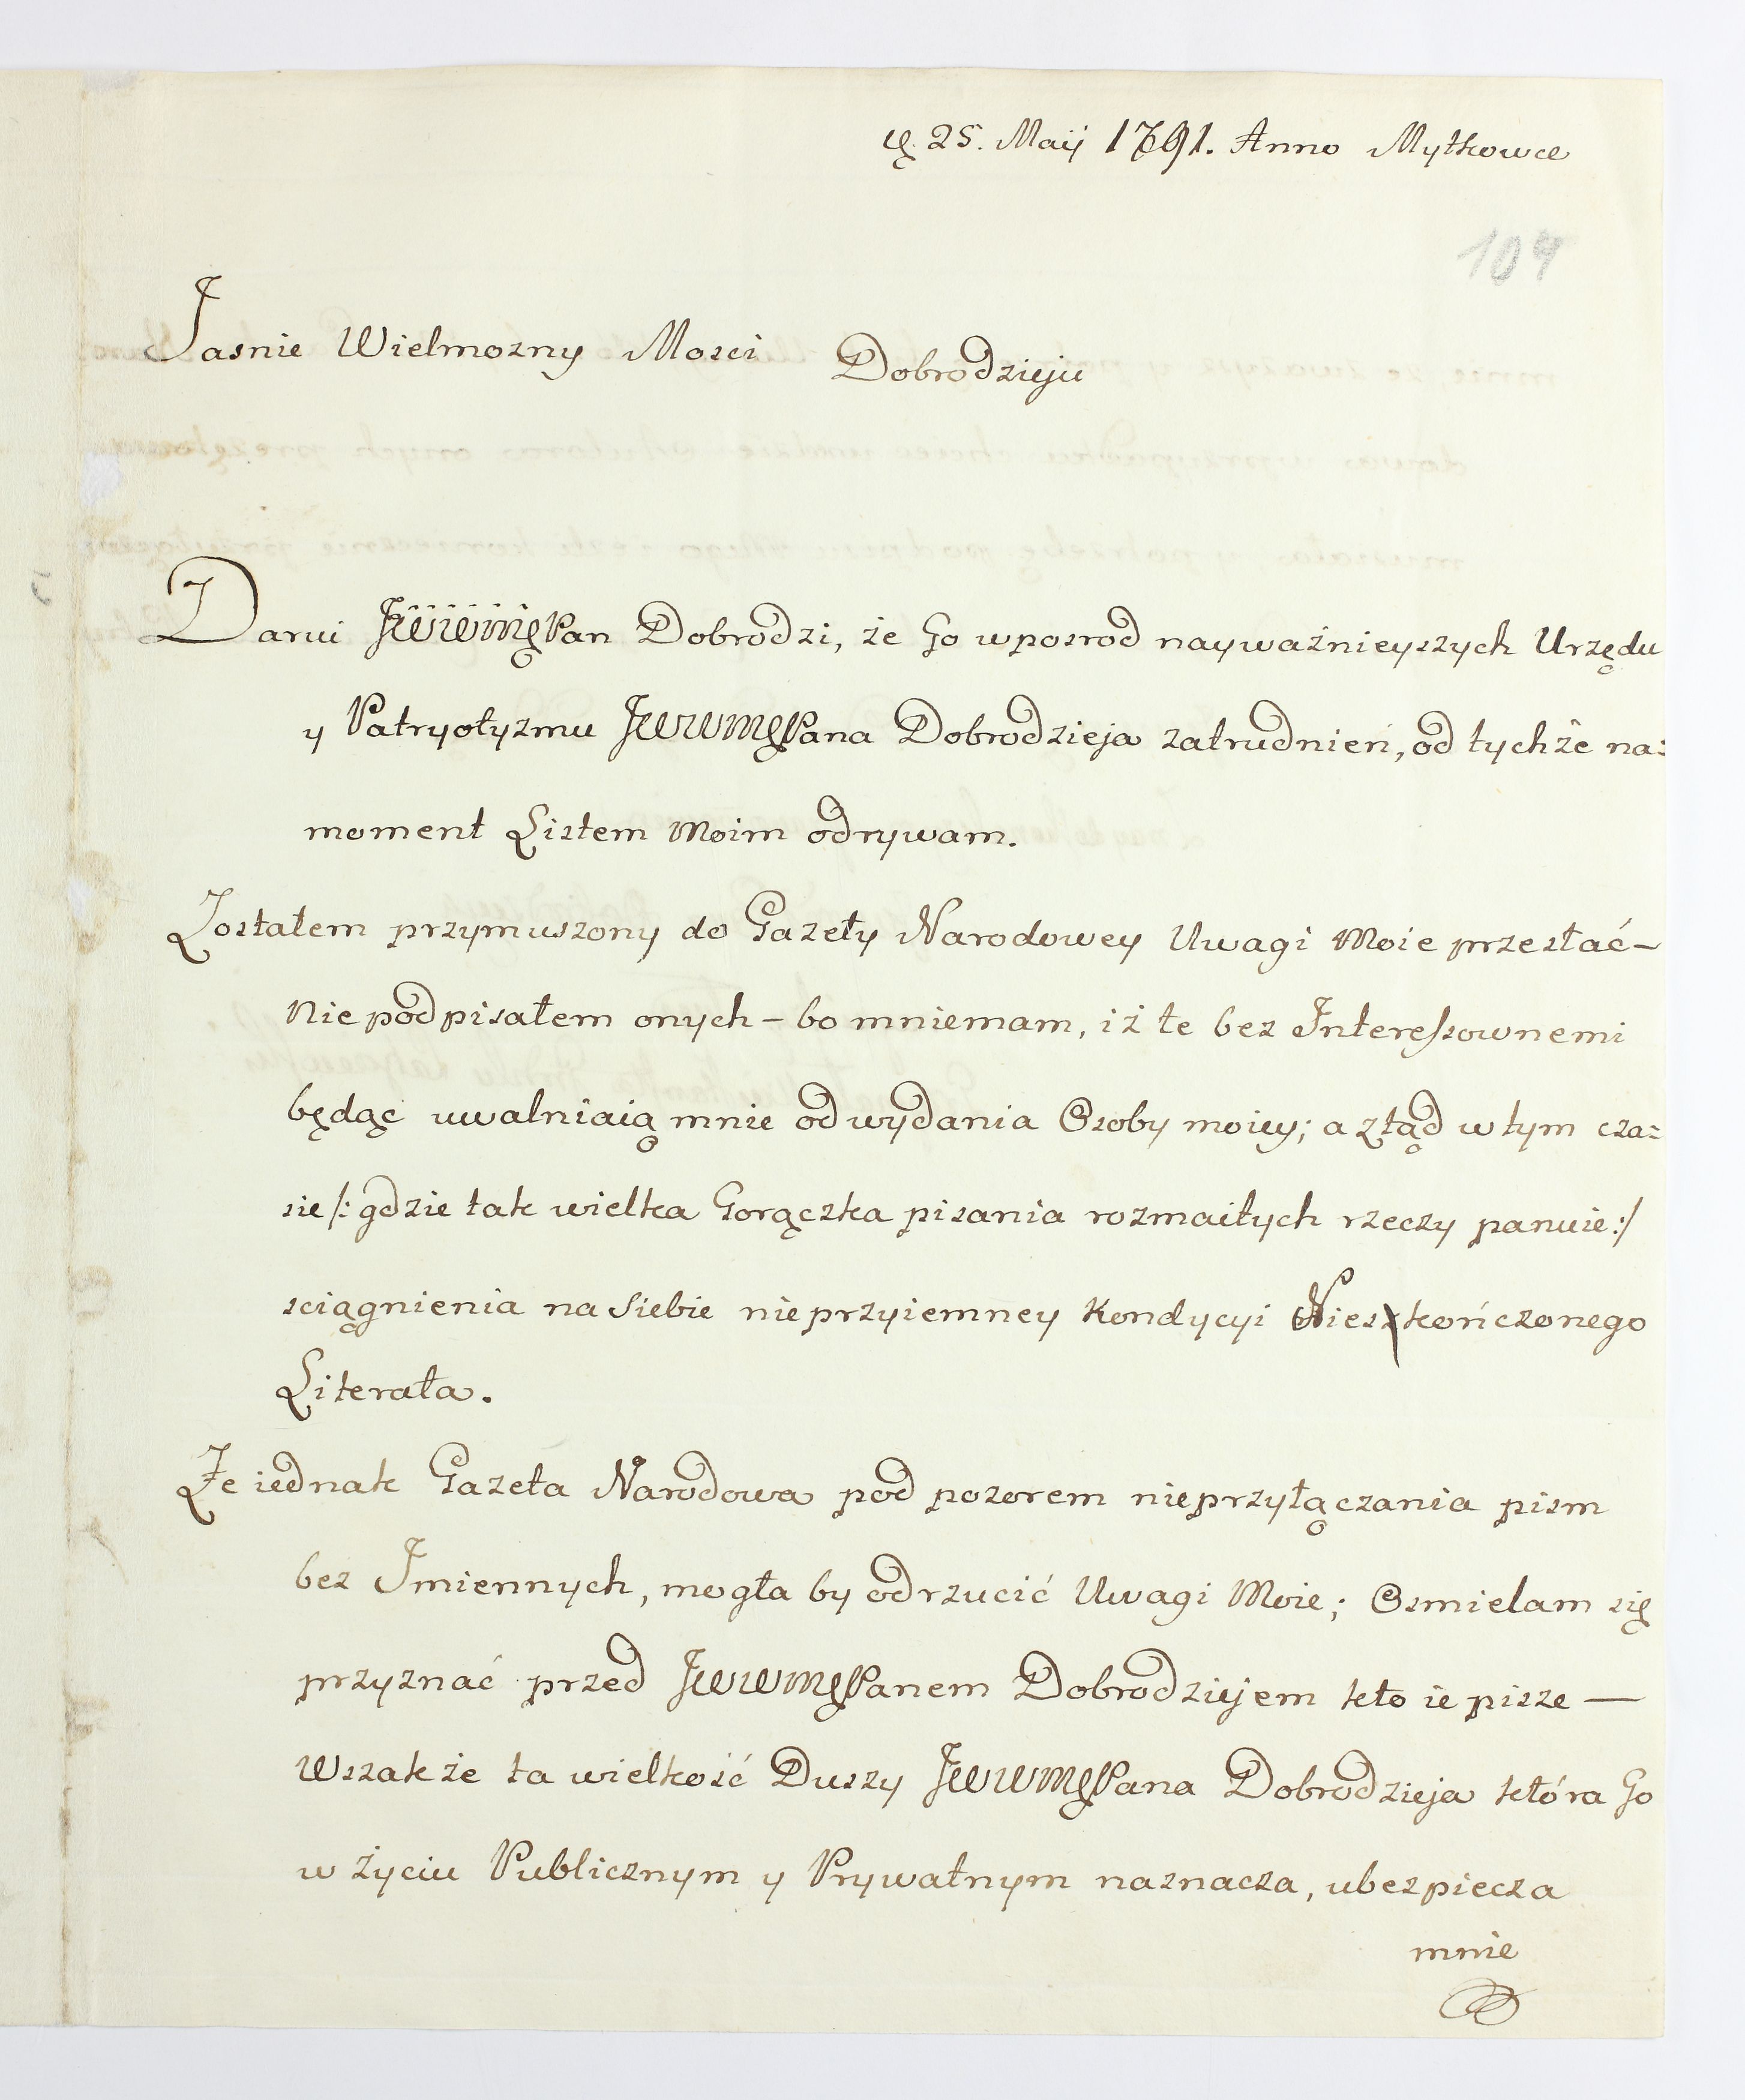 25. Maij 1791. Anno Mytkowce
104
Jasnie Wielmozny Mosci Dobrodzieju
Darui JWWMPan Dobrodzi, że Go wposrod nayważnieyszych Urzędu
y Patryotyzmu JWWMPana Dobrodzieja zatrudnień, od tychże na=
moment Listem Moim odrywam.
Zostałem przymuszony do Gazety Narodowey Uwagi Moie przesłać –
Nie podpisałem onych – bo mniemam, iż te bez Interessownemi
będąc uwalniaią mnie od wydania Osoby moiey; a ztąd w tym cza=
sie /: gdzie tak wielka Gorączka pisania rozmaitych rzeczy panuie :/
sciągnienia na Siebie nieprzyiemney Kondycyi Nieskończonego
Literata.
Że iednak Gazeta Narodowa pod pozorem nieprzyłączania pism
bez Imiennych, mogła by odrzucić Uwagi Moie; Osmielam się
przyznać przed JWWMPanem Dobrodziejem kto ie pisze —
Wszakże ta wielkość Duszy JWWMPana Dobrodzieja która Go
w życiu Publicznym y Prywatnym naznacza, ubezpiecza
mnie